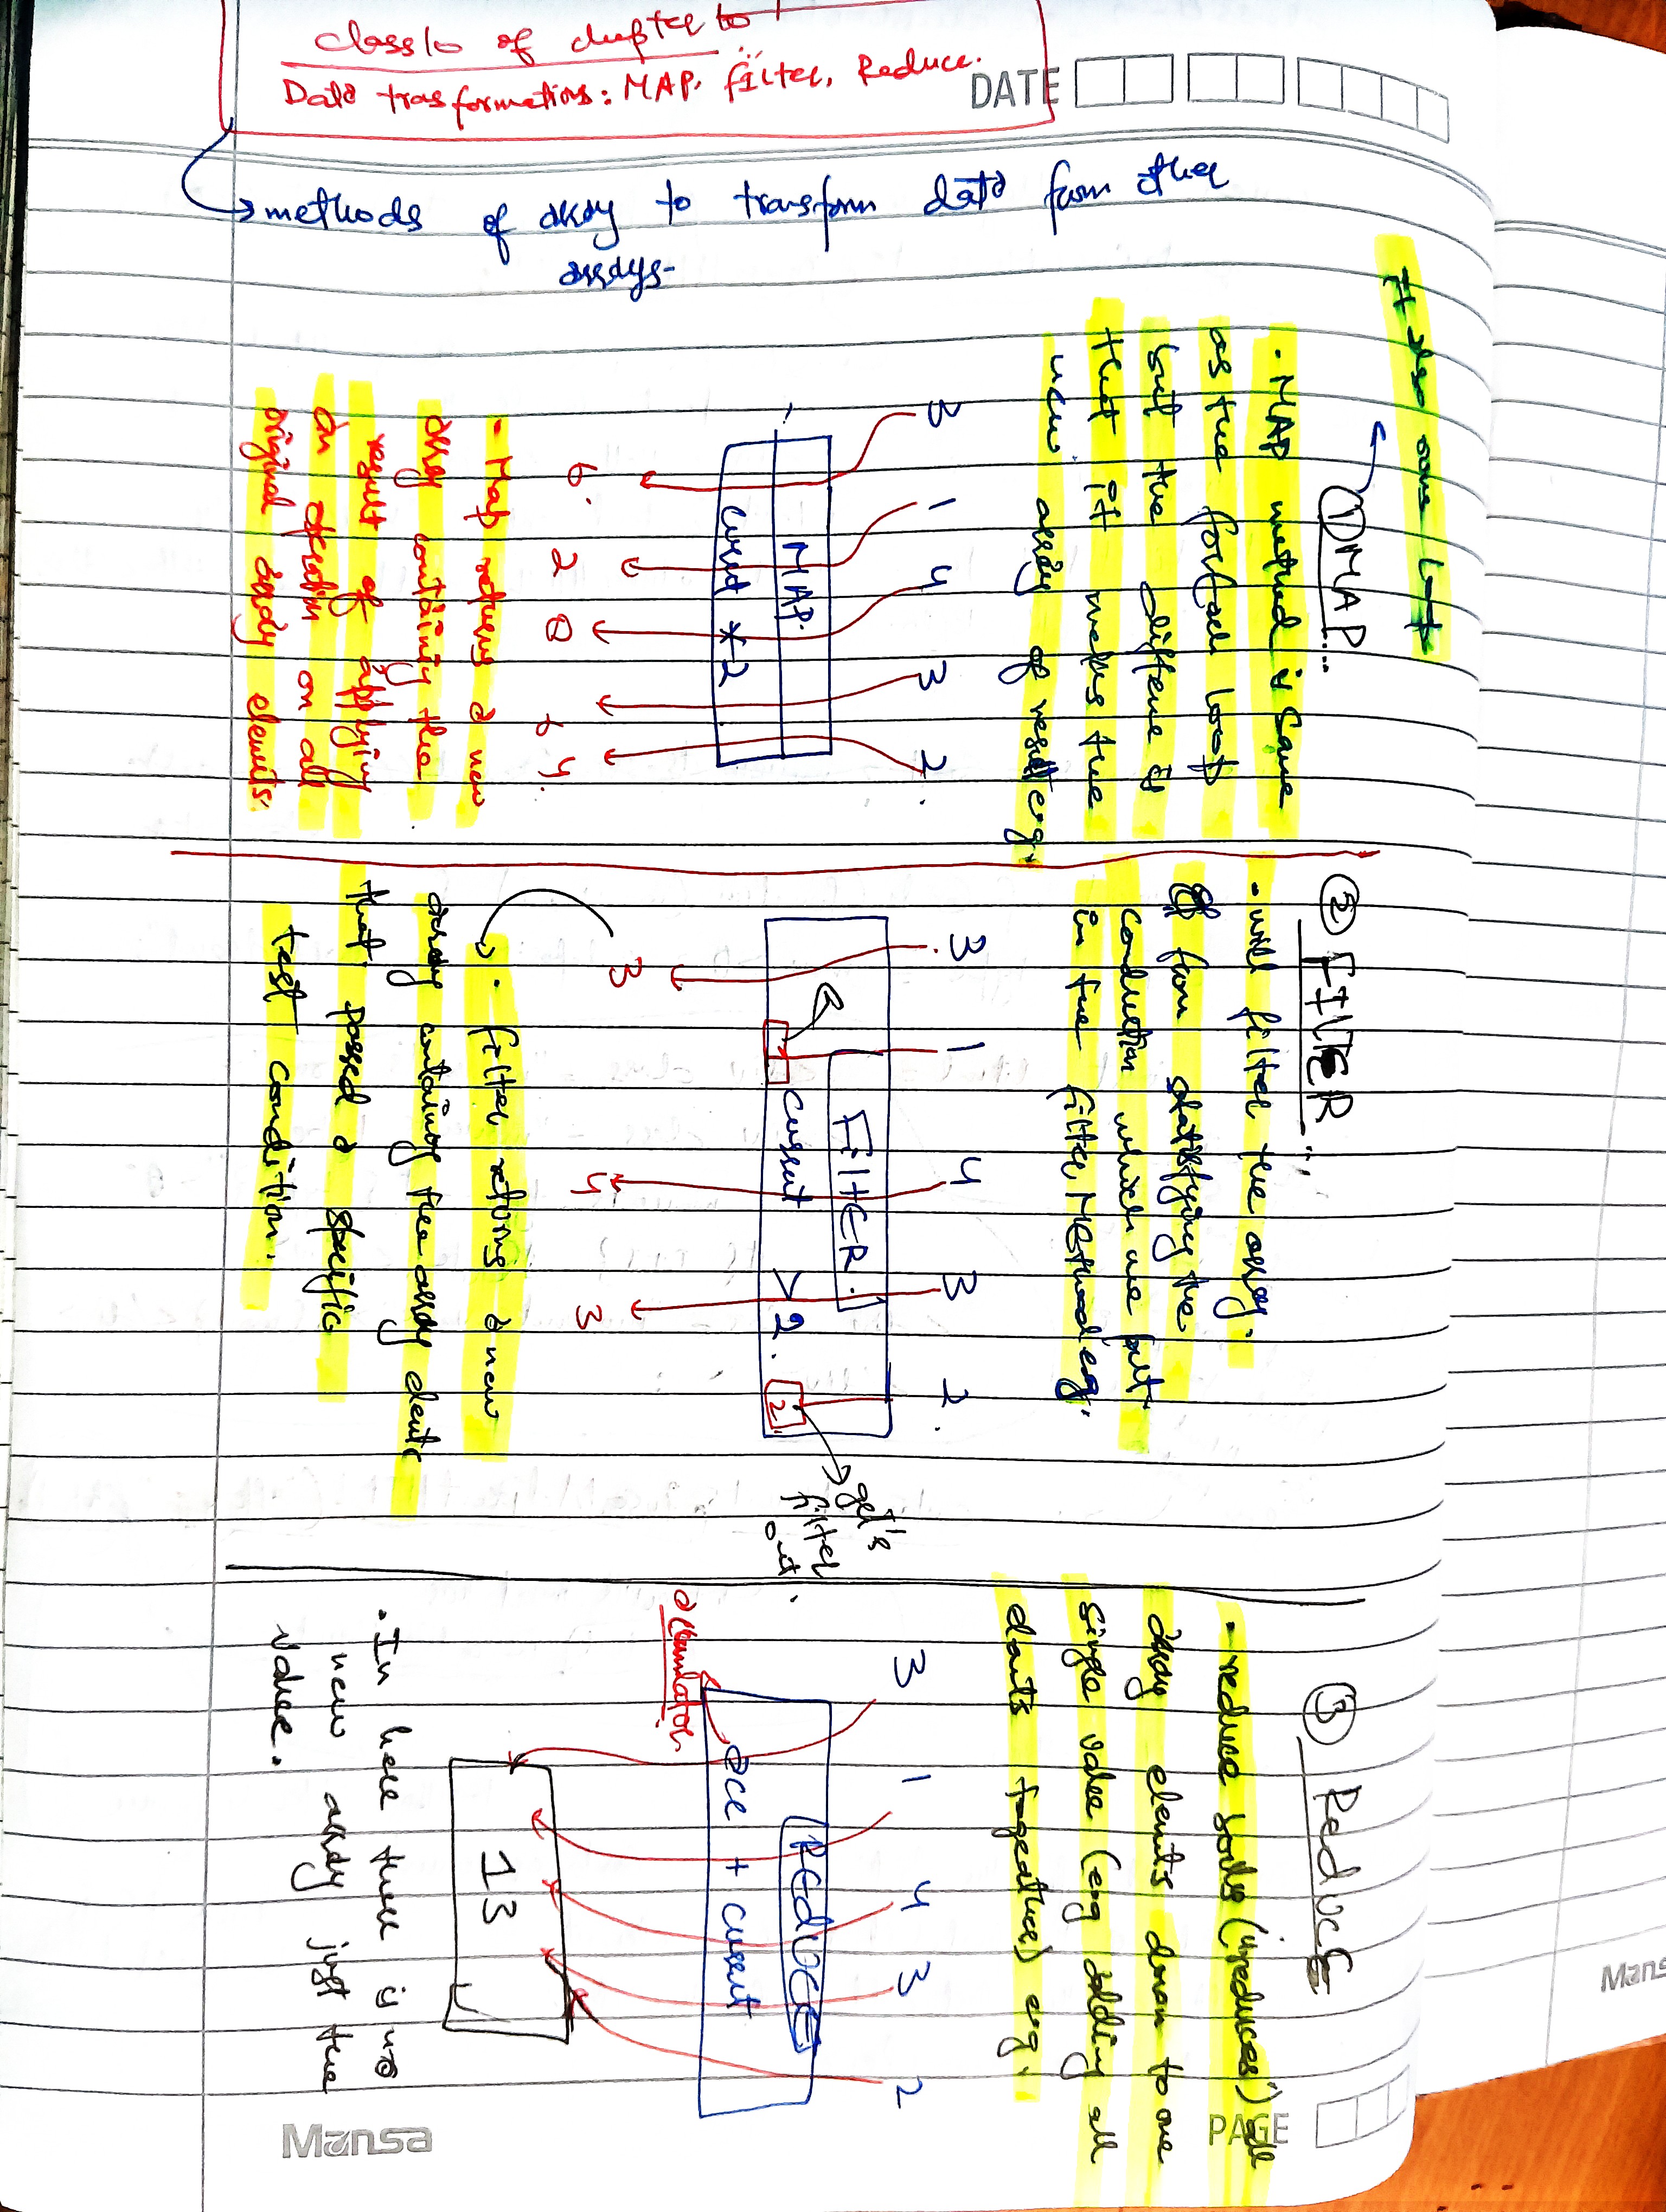 class 10 of chapter 10
Data trasformations: MAP, filter, Reduce.
DATE
methods of array to transform data from other
arrays-
# Also one loop
① MAP...
- MAP method is Same
as the forEach loop
but the differne is
that it makes the
new array of result eg.
3 1 4 3 2.
MAP.
Current *2
6. 2 8 6 4.
- Map returns a new
array containing the
result of applying
an operation on all
original array elements.
② FILTER...
- will filter the array.
from statisfying the
condition which we put
in the filter Method eg.
3 1 4 3 2.
FiltER.
Current >2.
2.
get's
filter
out.
3 4 3
. filter returns a new
array containing the array elents
that passed a specific
test condition.
③ REdUCE
- reduce boils ('reduces') all
array elents down to one
single value (eg adding all
elents togeather) eg.
3 1 4 3 2
REdUCE
acc + current
accumulator.
13
. In here there is no
new array just the
value.
Mansa
PAGE